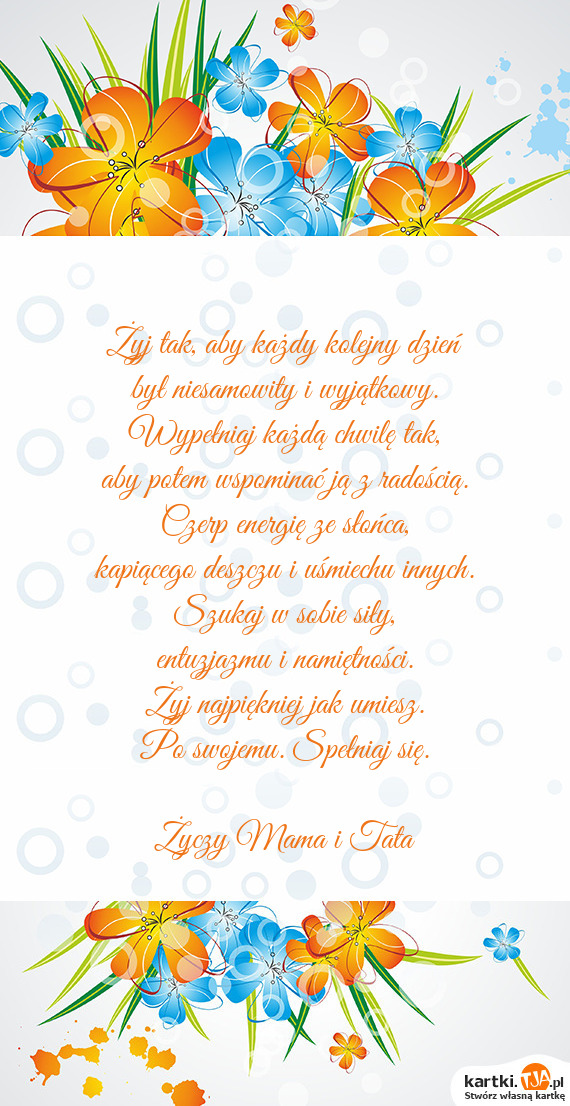 Żyj tak, aby każdy kolejny dzień
był niesamowity i wyjątkowy.
Wypełniaj każdą chwilę tak,
aby potem wspominać ją z radością.
Czerp energię ze słońca,
kapiącego deszczu i uśmiechu innych.
Szukaj w sobie siły,
entuzjazmu i namiętności.
Żyj najpiękniej jak umiesz.
Po swojemu. Spełniaj się.
Życzy Mama i Tata
kartki.TJA.pl
Stwórz własną kartkę